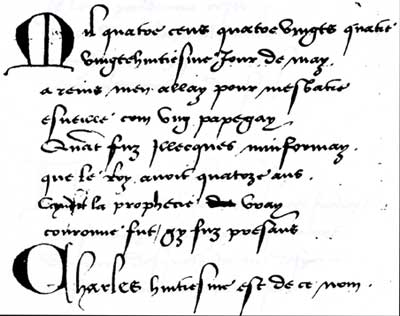 Mil quatre cens quatre vingts quatre
vingtehuitiesme Jour de may
a reins men allay pour mesbatre
esueille com vng papegay
Quāt fuz jllecques minformay
que le Roy auoit quatorze ans
la prophecie vray
couronne fut gy fuz presans
Charles huitiesme est de ce nom